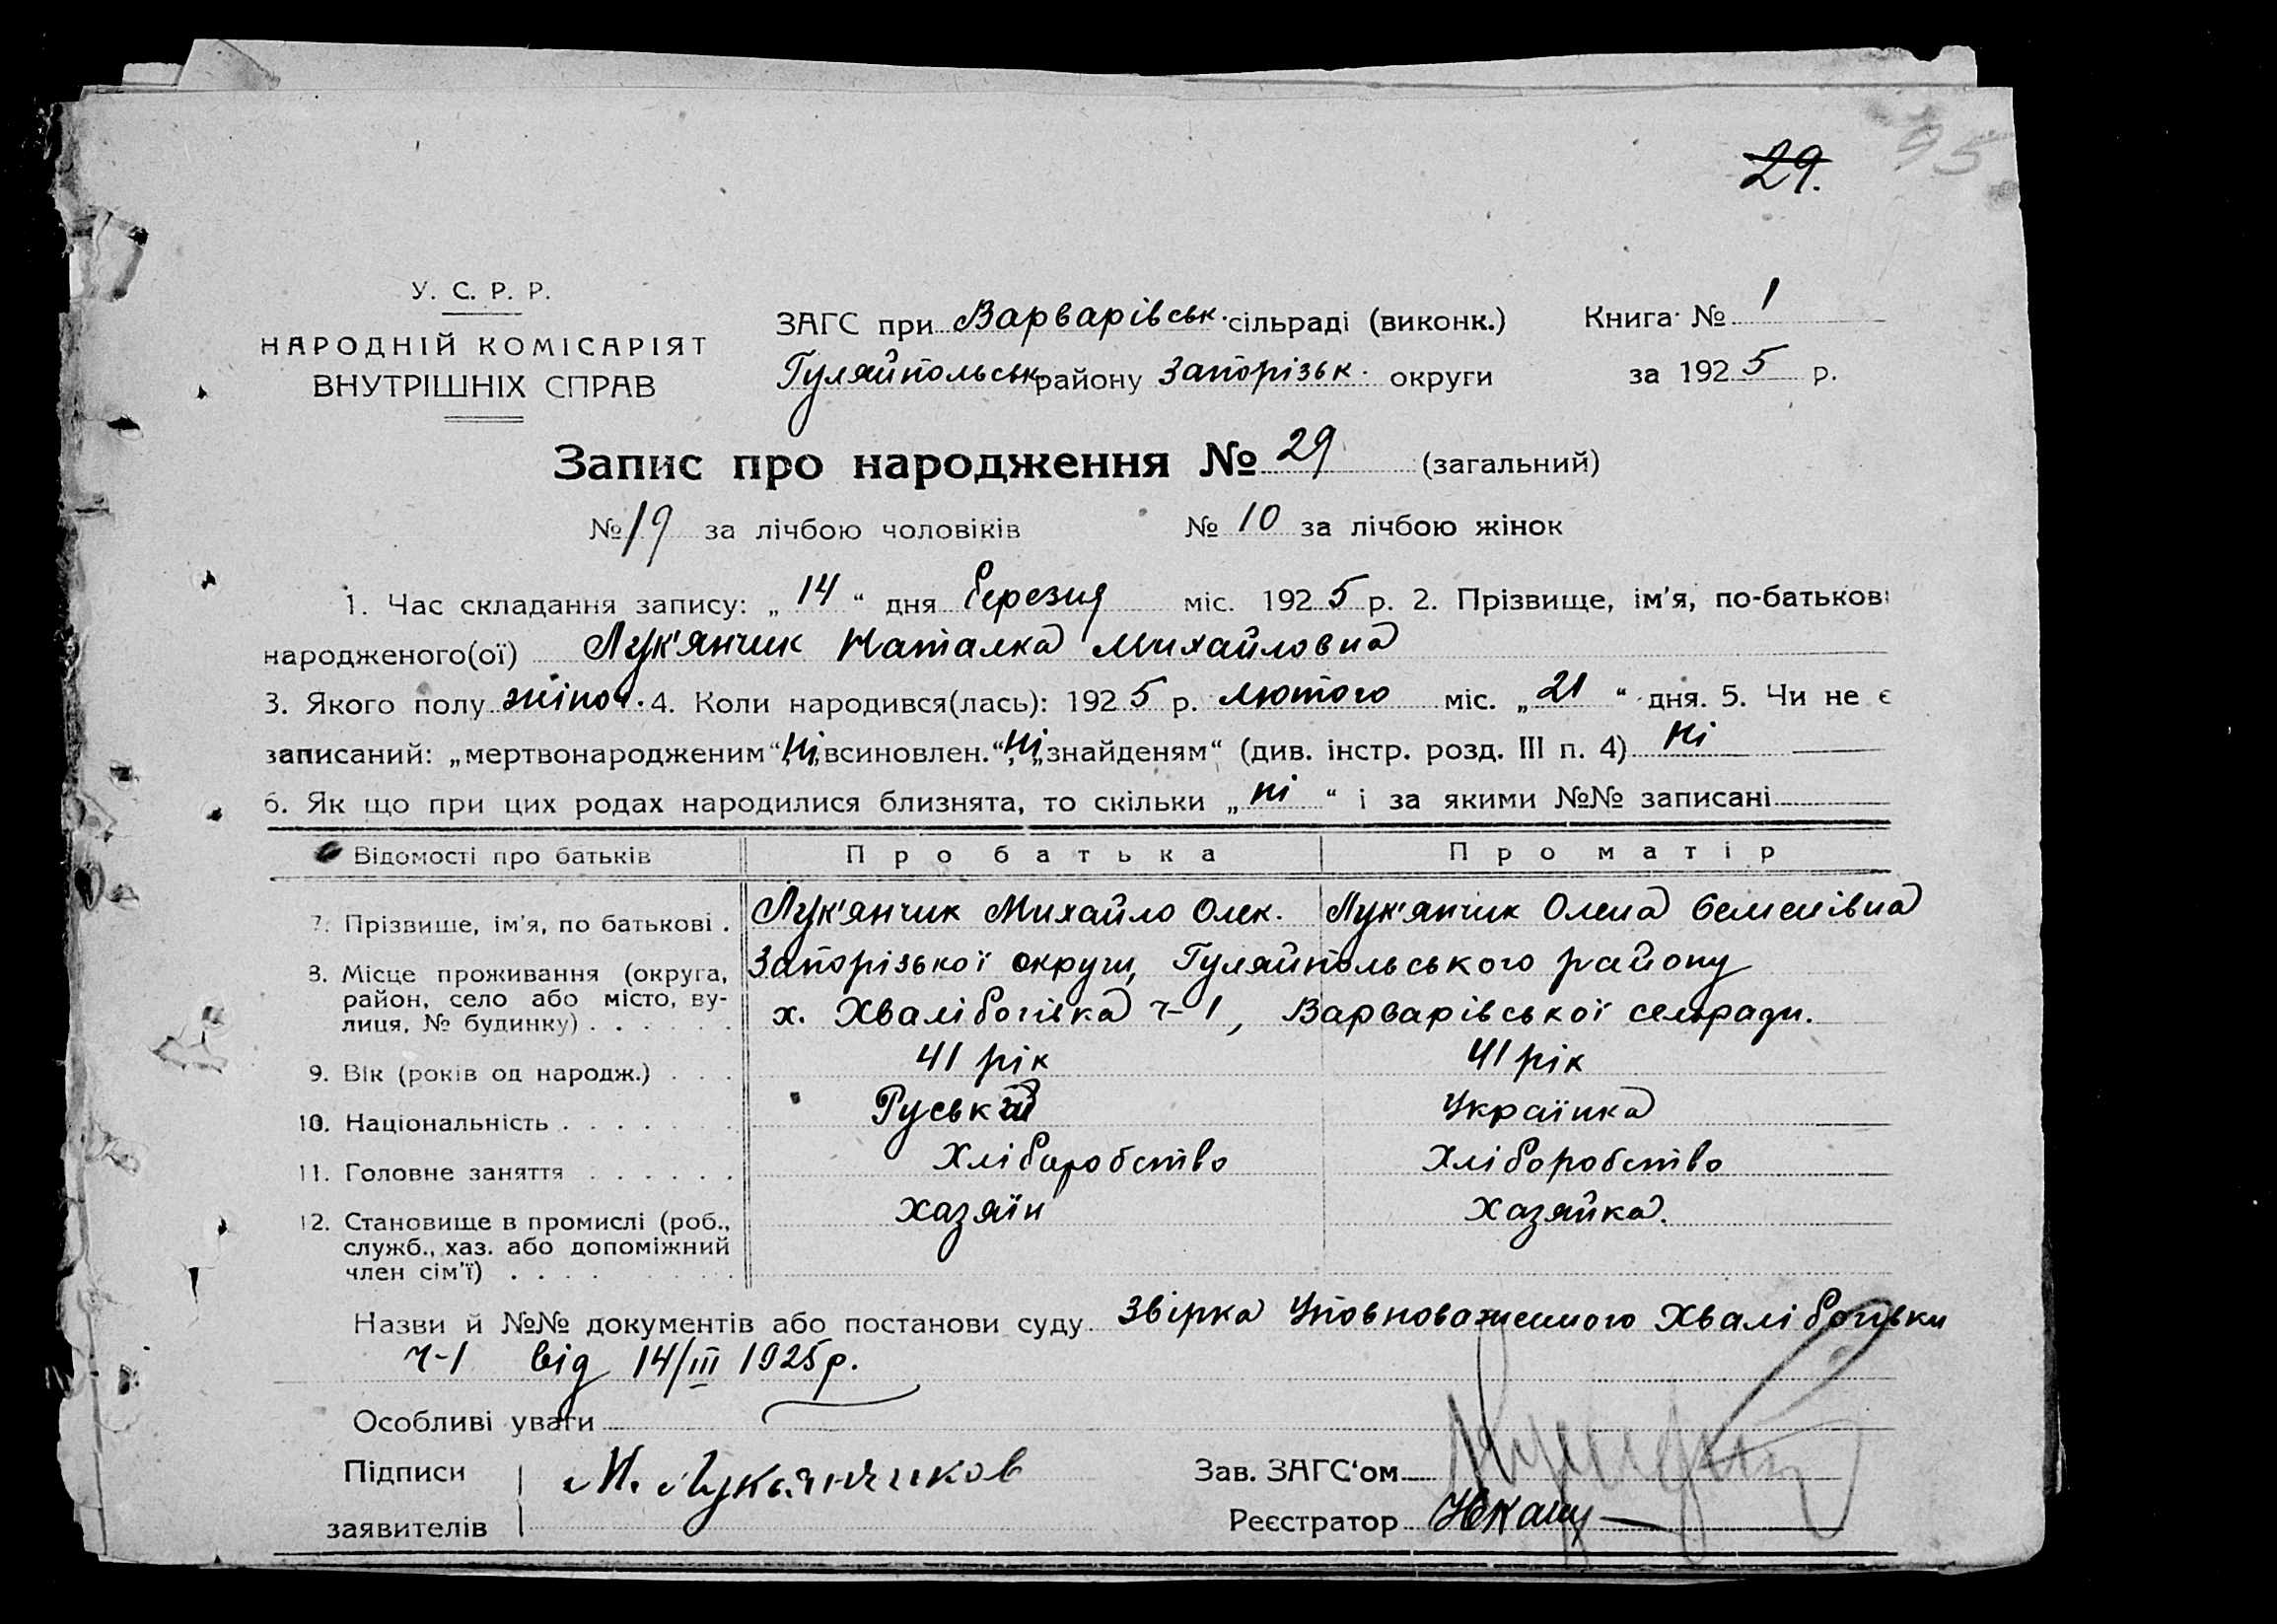 29.
95
У. С. Р. Р.
НАРОДНІЙ КОМІСАРІЯТ
ВНУТРІШНІХ СПРАВ
ЗАГС при Варварівськ. сільраді (виконк.)
Гуляйпольськ району Запорізьк. округи
Книга № 1
за 1925 р.
Запис про народження № 29 (загальний)
№ 19 за лічбою чоловіків № 10 за лічбою жінок
1. Час складання запису: „14“ дня березня міс. 1925 р. 2. Прізвище, ім'я, по-батькові
народженого(ої) Лук'янчик Наталка Михайловна
3. Якого полу жіноч. 4. Коли народився(лась): 1925 р. лютого міс. „21“ дня. 5. Чи не є
записаний: „мертвонародженим“ ні, „всиновлен.“ ні, „знайденям“ (див. інстр. розд. III п. 4) ні
6. Як що при цих родах народилися близнята, то скільки „ні“ і за якими №№ записані
Відомості про батьків Про батька Про матір
7. Прізвише, ім'я, по батькові . Лук'янчик Михайло Олек. Лук'янчик Олена Семенівна
8. Місце проживання (округа, Запорізької округи, Гуляйпольського району
район, село або місто, ву-
лиця, № будинку) . . . . . . х. Хвалібогівка ч-1, Варварівської сельради.
9. Вік (років од народж.) . . . 41 рік 41 рік
10. Національність . . . . . . . Руський Українка
11. Головне заняття . . . . . . Хліборобство Хліборобство
12. Становище в промислі (роб., хазяїн Хазяйка.
служб., хаз. або допоміжний
член сім'ї) . . . .
Назви й №№ документів або постанови суду Звірка Уповноваженного Хвалібогівки
ч-1 від 14/III 1925 р.
Особливі уваги
Підписи М. Лукьянчиков Зав. ЗАГС'ом
заявителів Реєстратор